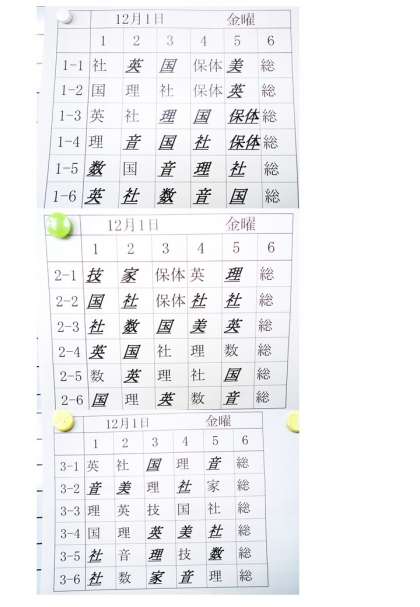 12月1日 金曜
1 2 3 4 5 6
1-1 社 英 国 保体 美 総
1-2 国 理 社 保体 英 総
1-3 英 社 理 国 保体 総
1-4 理 音 国 社 保体 総
1-5 数 国 音 理 社 総
1-6 英 社 数 音 国 総
12月1日 金曜
1 2 3 4 5 6
2-1 技 家 保体 英 理 総
2-2 国 社 保体 社 社 総
2-3 社 数 国 美 英 総
2-4 英 国 社 理 数 総
2-5 数 英 理 社 国 総
2-6 国 理 英 数 音 総
12月1日 金曜
1 2 3 4 5 6
3-1 英 社 国 理 音 総
3-2 音 美 理 社 家 総
3-3 理 英 技 国 社 総
3-4 国 理 英 美 社 総
3-5 社 音 理 技 数 総
3-6 社 数 家 音 理 総